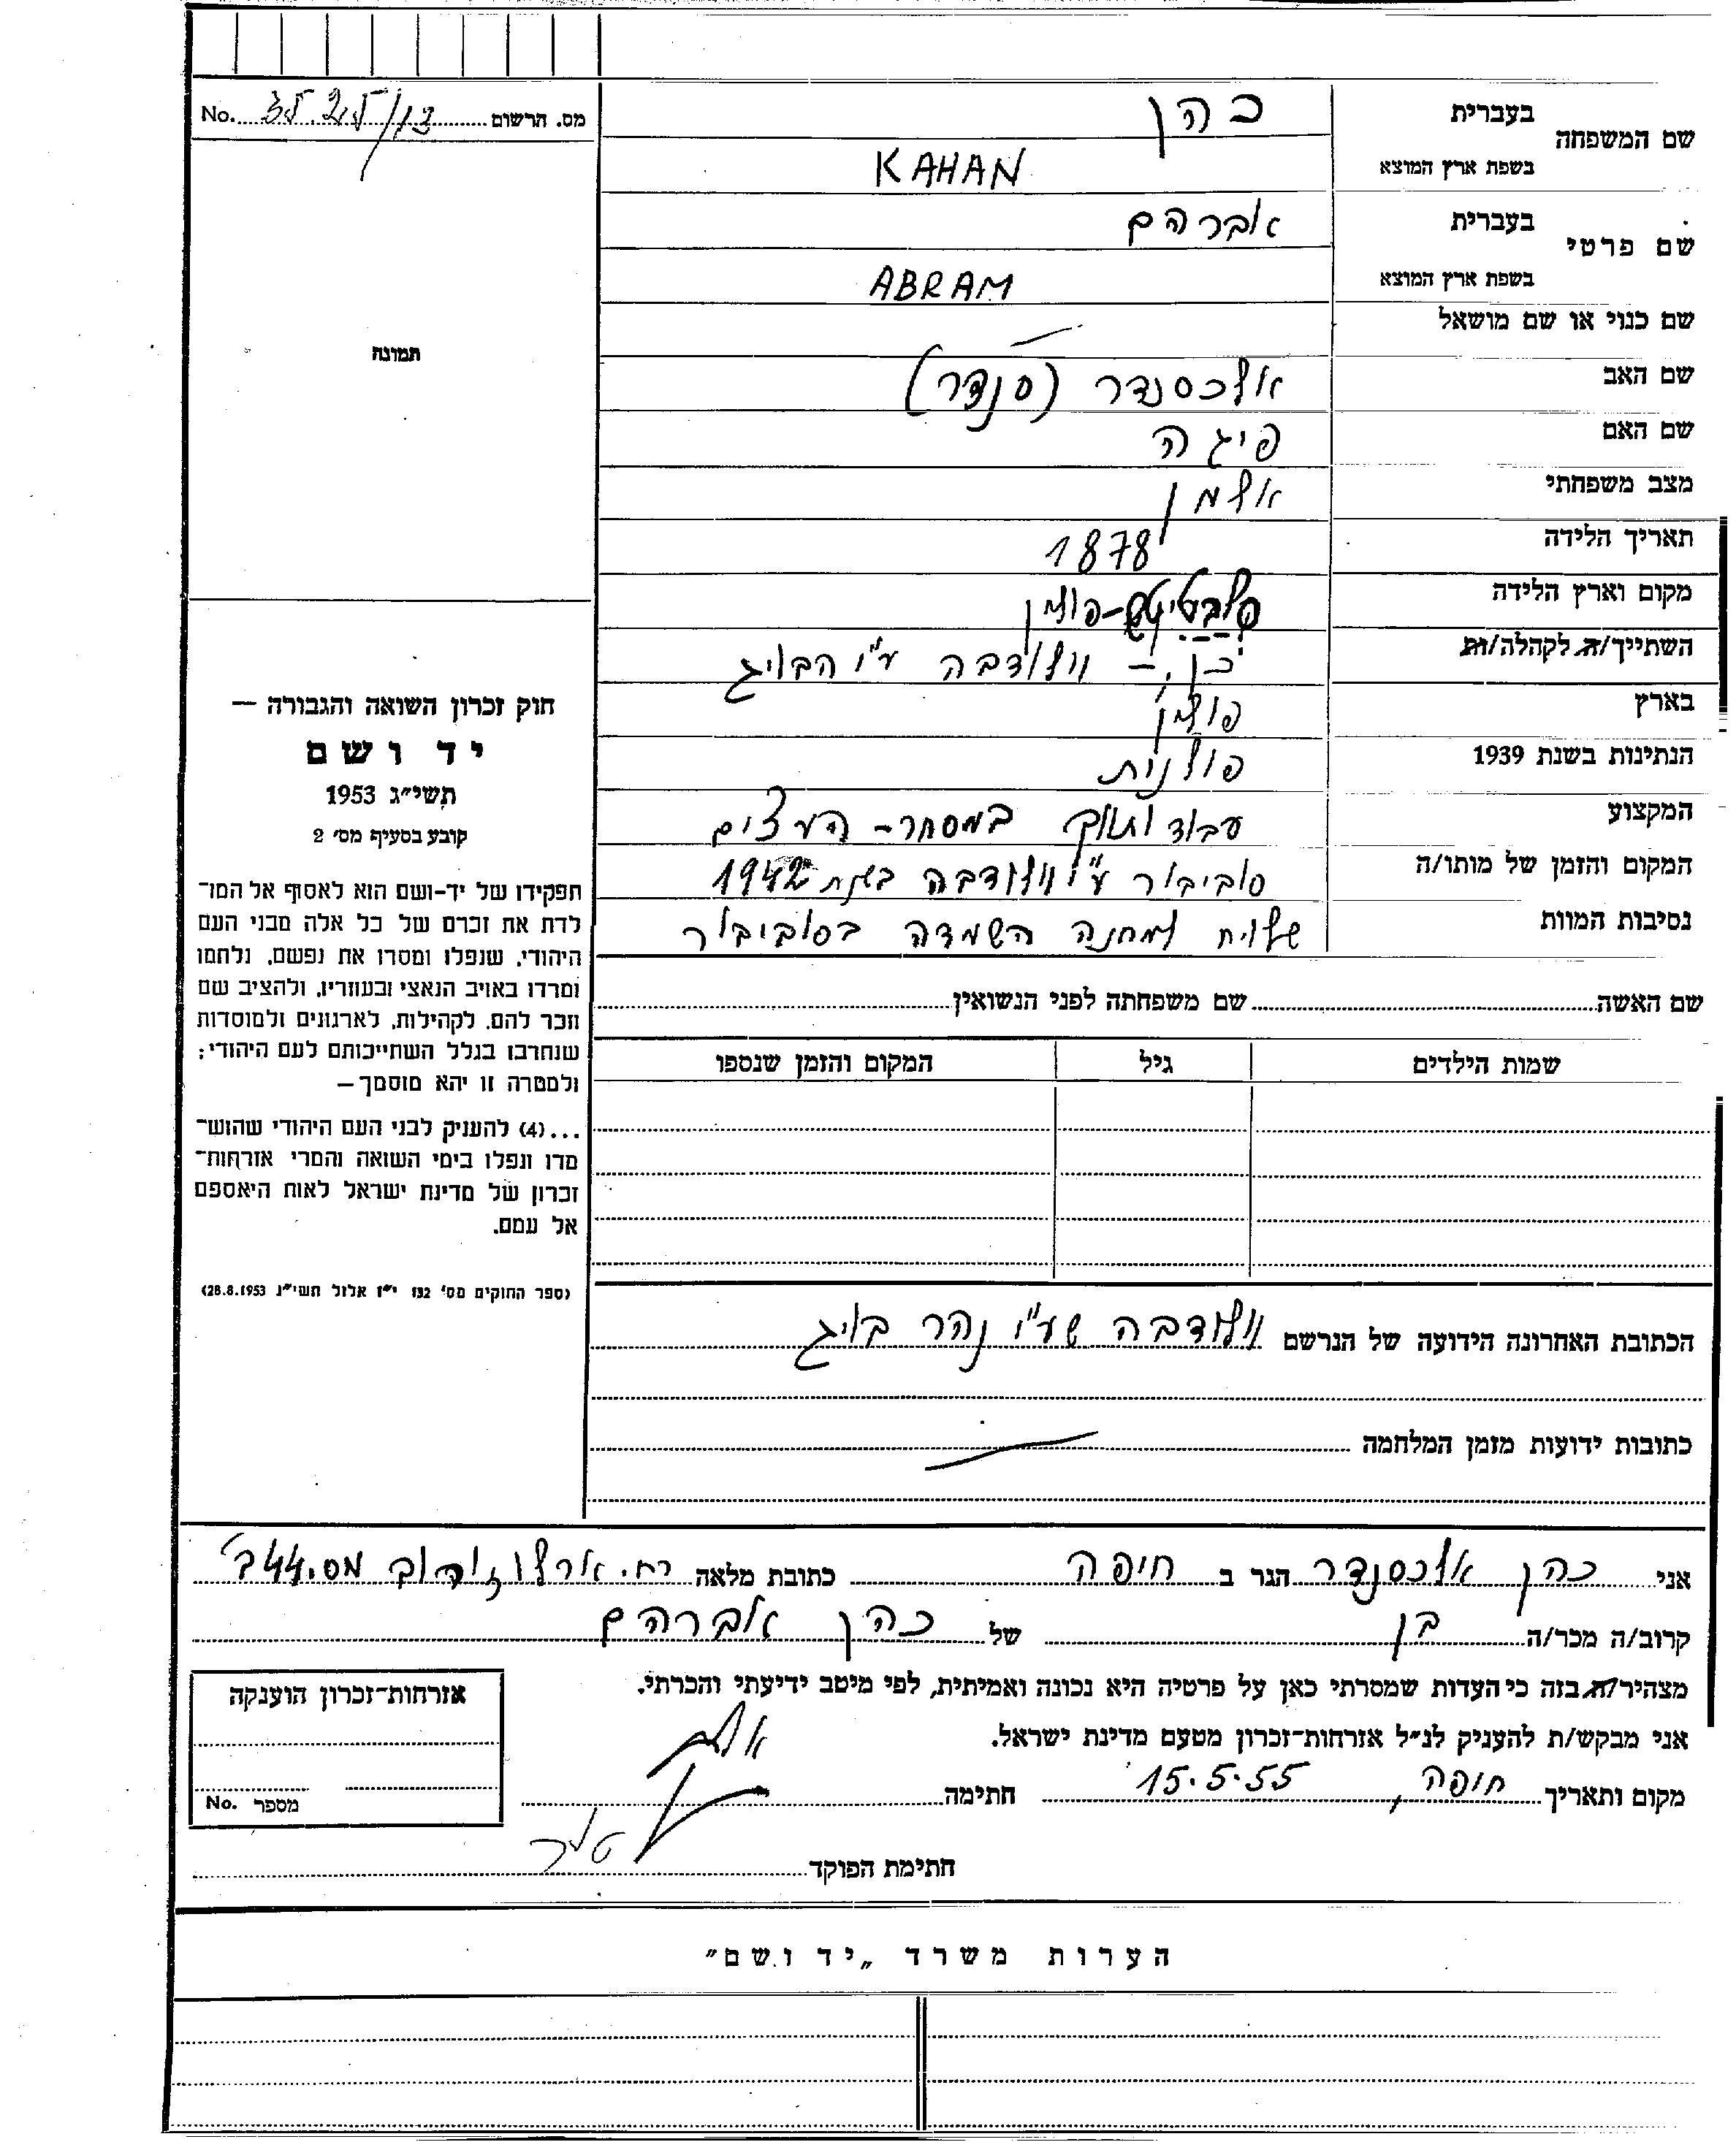 מס. הרשום 3525/13 No.
שם המשפחה בעברית כהן
בשפת ארץ המוצא KAHAN
שם פרטי בעברית אברהם
בשפת ארץ המוצא ABRAM
שם כנוי או שם מושאל —
שם האב אלכסנדר (סנדר)
שם האם פיגה
מצב משפחתי אלמן
תאריך הלידה 1878
מקום וארץ הלידה פולין
השתייך/ה לקהלה/ות כן, – וולודבה ע"י הבויג
בארץ פולין
הנתינות בשנת 1939 פולנית
המקצוע במסחר-העצים
המקום והזמן של מותו/ה סוביבור ע"י וולודבה בשנת 1942
נסיבות המוות שלוח למחנה השמדה בסוביבור
תמונה
חוק זכרון השואה והגבורה —
יד ושם
תשי״ג 1953
קובע בסעיף מס׳ 2
תפקידו של יד-ושם הוא לאסוף אל המו־
לדת את זכרם של כל אלה מבני העם
היהודי, שנפלו ומסרו את נפשם, נלחמו
ומרדו באויב הנאצי ובעוזריו, ולהציב שם
וזכר להם, לקהילות, לארגונים ולמוסדות
שנחרבו בגלל השתייכותם לעם היהודי;
ולמטרה זו יהא מוסמך —
...(4) להעניק לבני העם היהודי שהוש־
מדו ונפלו בימי השואה והמרי אזרחות־
זכרון של מדינת ישראל לאות היאספם
אל עמם.
(ספר החוקים מס׳ 132 י״ז אלול תשי״ג 28.8.1953)
שם האשה שם משפחתה לפני הנשואין
שמות הילדים גיל המקום והזמן שנספו
הכתובת האחרונה הידועה של הנרשם וולודבה שע"י נהר בויג
כתובות ידועות מזמן המלחמה —
אני כהן אלכסנדר הגר ב חיפה כתובת מלאה רח. ארלוזורוב מס. 44ב'
קרוב/ה מכר/ה בן של כהן אברהם
מצהיר/ה בזה כי העדות שמסרתי כאן על פרטיה היא נכונה ואמיתית, לפי מיטב ידיעתי והכרתי.
אני מבקש/ת להעניק לנ״ל אזרחות־זכרון מטעם מדינת ישראל.
מקום ותאריך חיפה, 15.5.55 חתימה
חתימת הפוקד
אזרחות־זכרון הוענקה
מספר No.
הערות משרד „יד ושם"